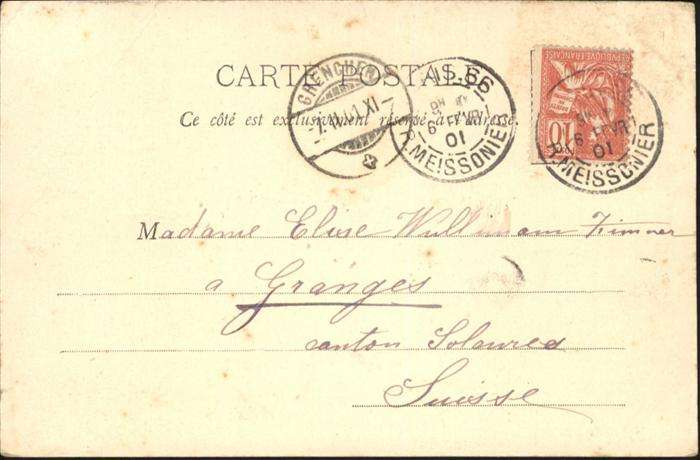 CARTE POSTALE
Ce côté est exclusivement réservé à l'adresse.
GRENCHEN
XI
66
6 FEVR
01
R. MEISSONIER
RÉPUBLIQUE FRANÇAISE
10
6 FEVR
01
R. MEISSONIER
Madame Elise Wullimann Zimmer
à Granges
canton Soleure
Suisse